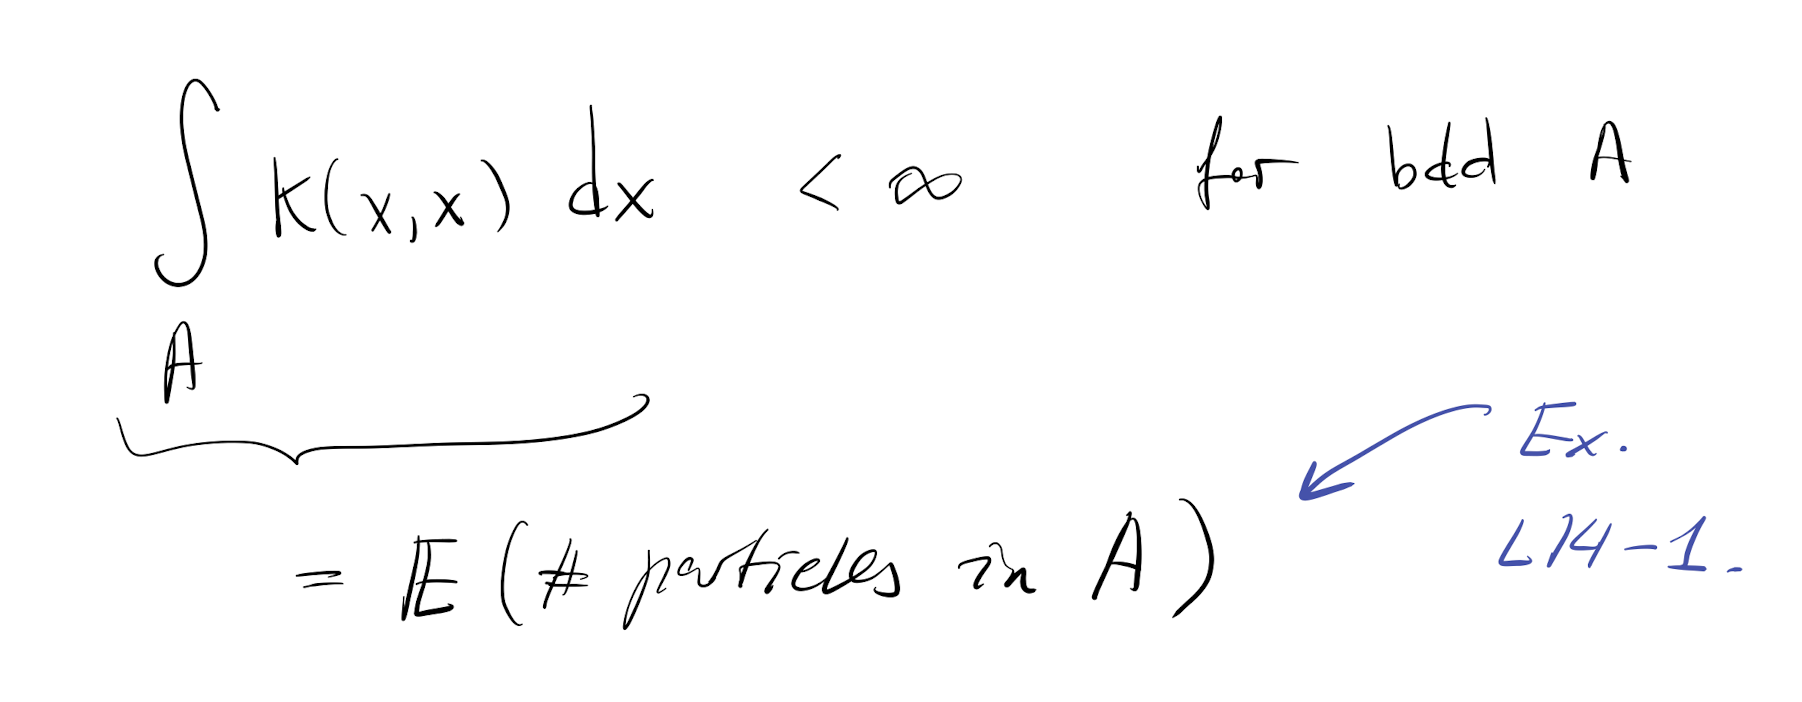 ∫ K(x,x) dx < ∞ for bdd A
A
Ex.
= 𝔼 (# particles in A)
L14-1.